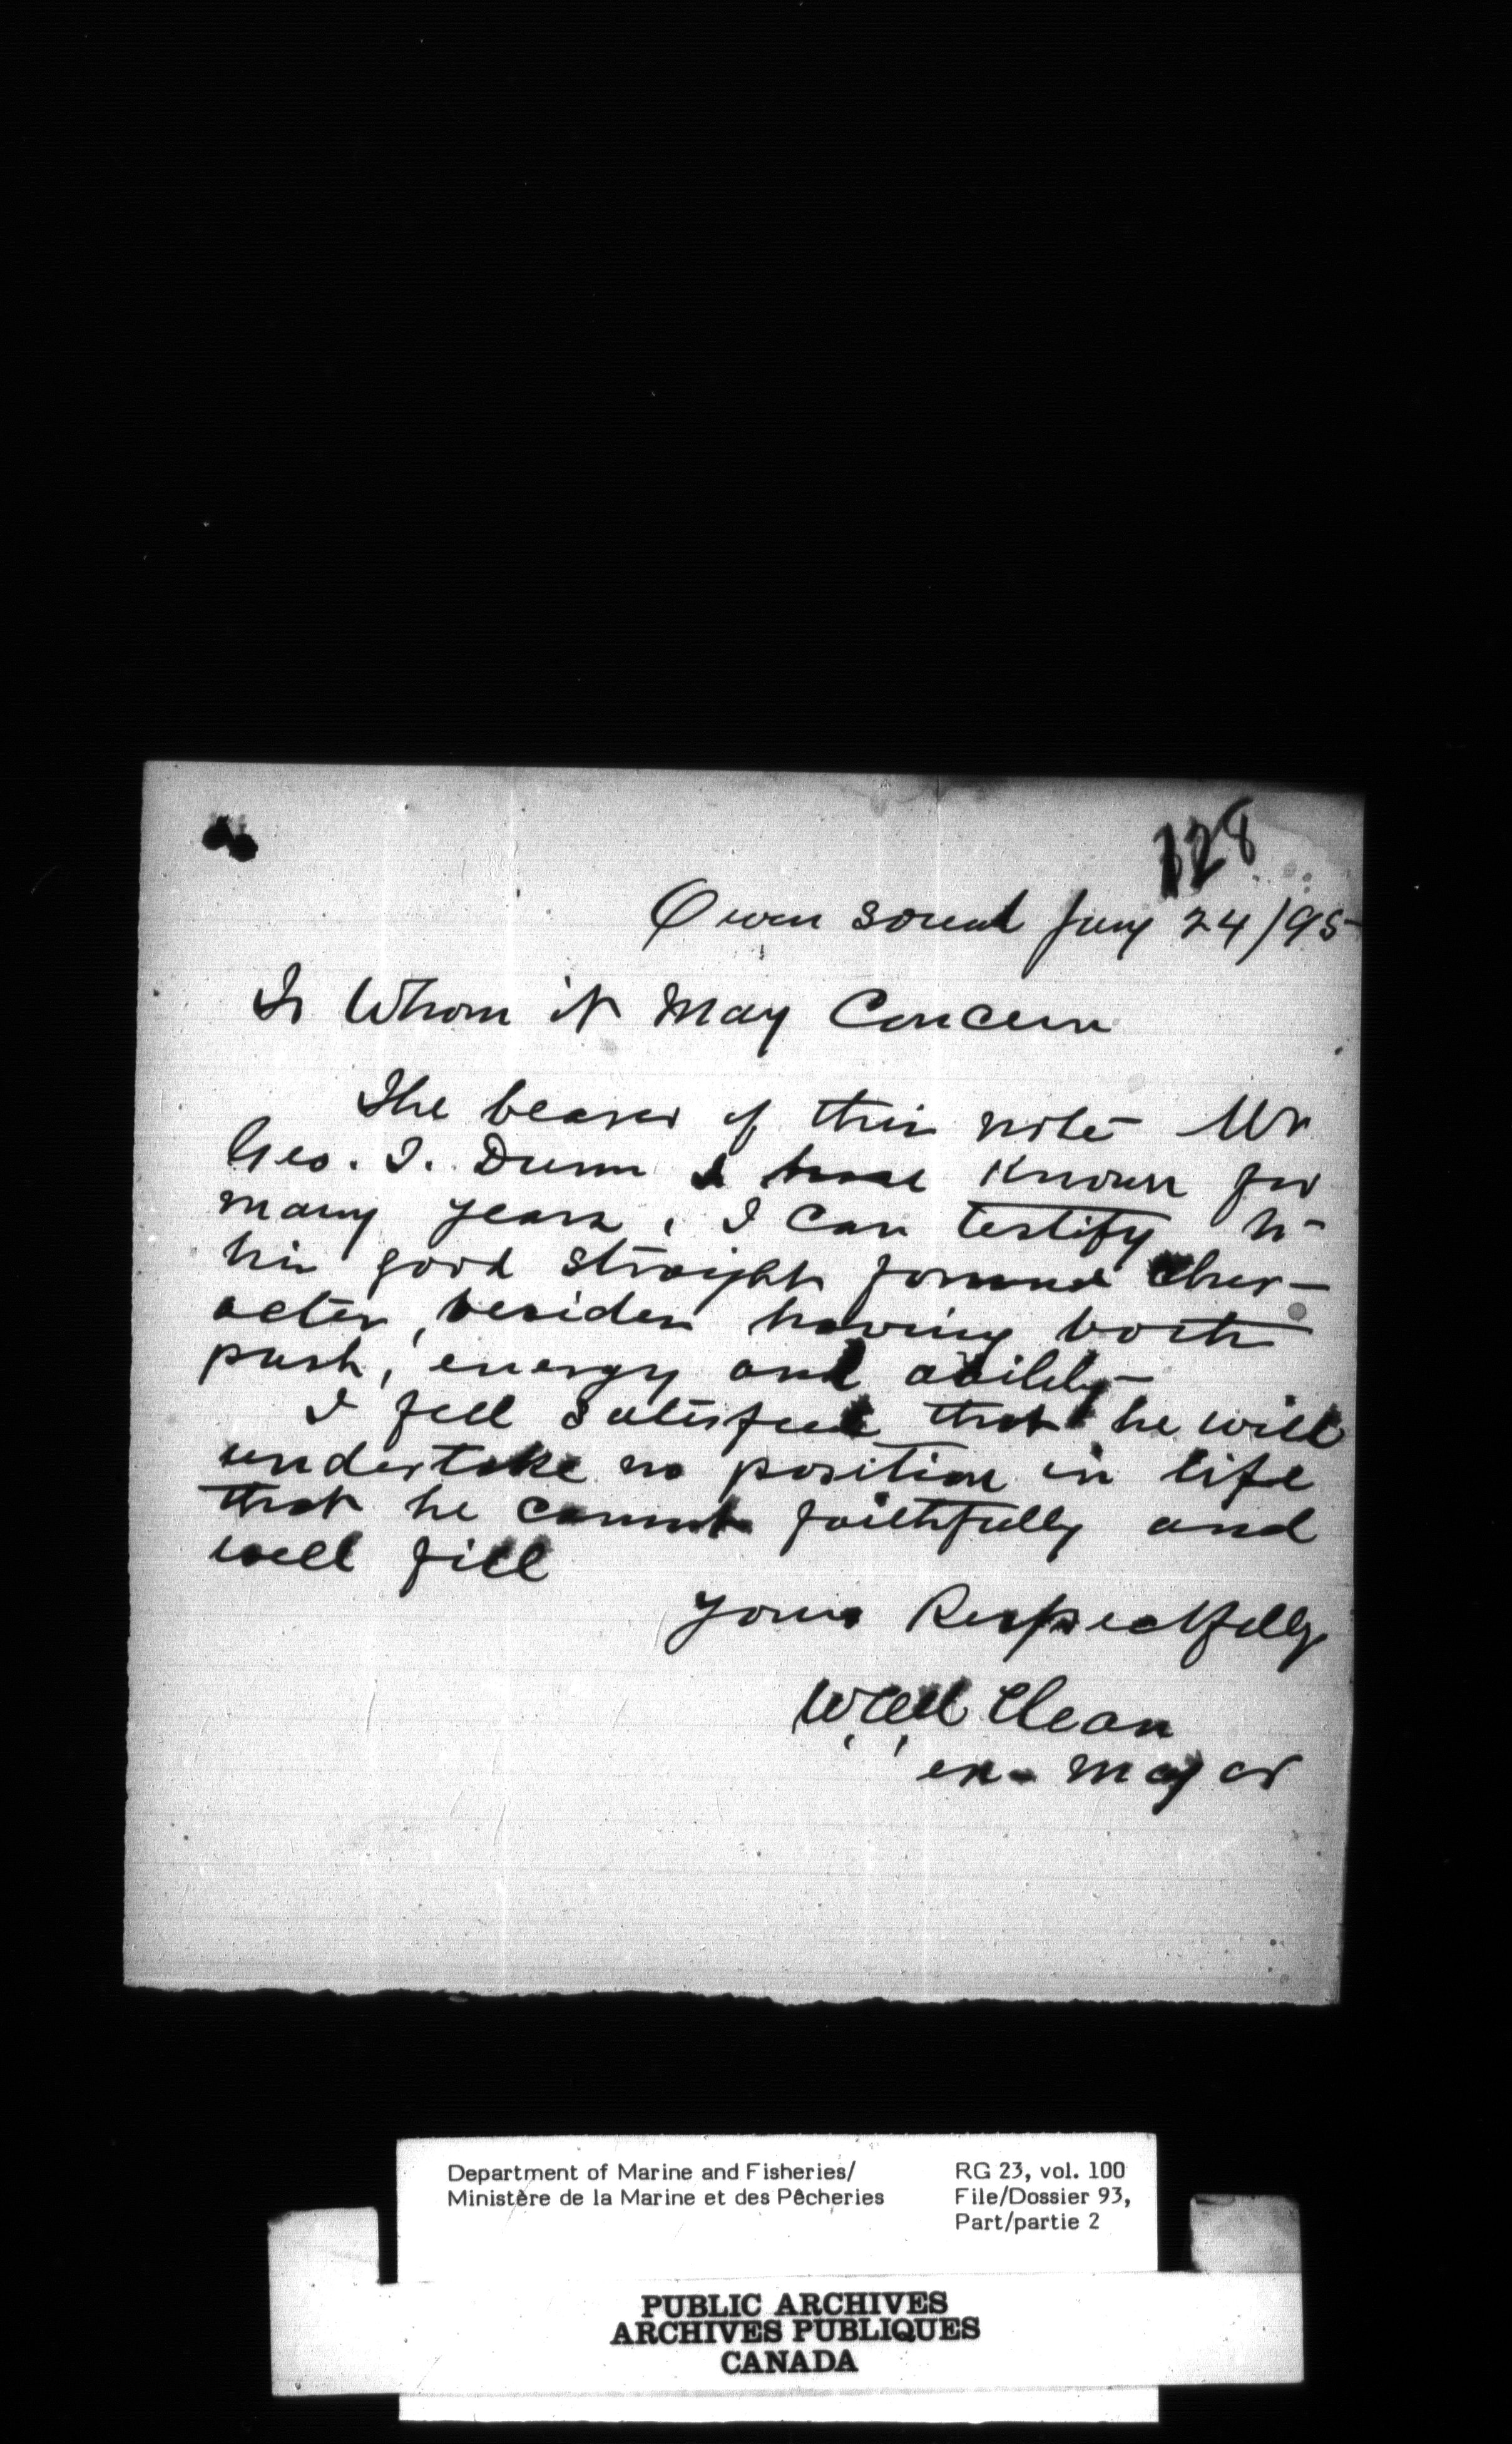 128
Owen Sound Jany 24/95
To Whom it May Concern
The bearer of this note Mr
Geo. I. Dunn I have known for
many years, I can testify to
his good straight forward char-
acter, besides having both
push, energy and ability
I feel satisfied that he will
undertake no position in life
that he cannot faithfully and
well fill
Yours Respectfully
Clean
ex-Mayor
Department of Marine and Fisheries/
Ministère de la Marine et des Pêcheries
RG 23, vol. 100
File/Dossier 93,
Part/partie 2
PUBLIC ARCHIVES
ARCHIVES PUBLIQUES
CANADA